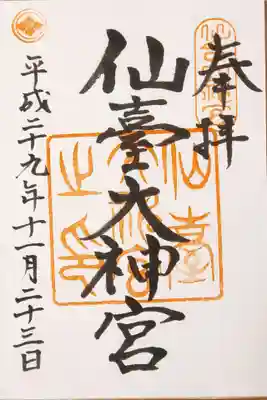 奉拝
仙臺大神宮
平成二十九年十一月二十三日